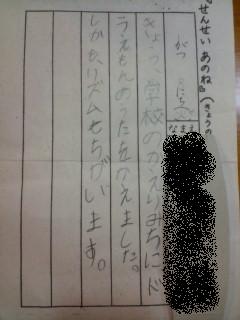 『せんせい あのね』(きょうの
がつ にち
なまえ
きょう、学校のかえりみちにド
うえもんのうたをかえました。
しかも、リズムもちがいます。